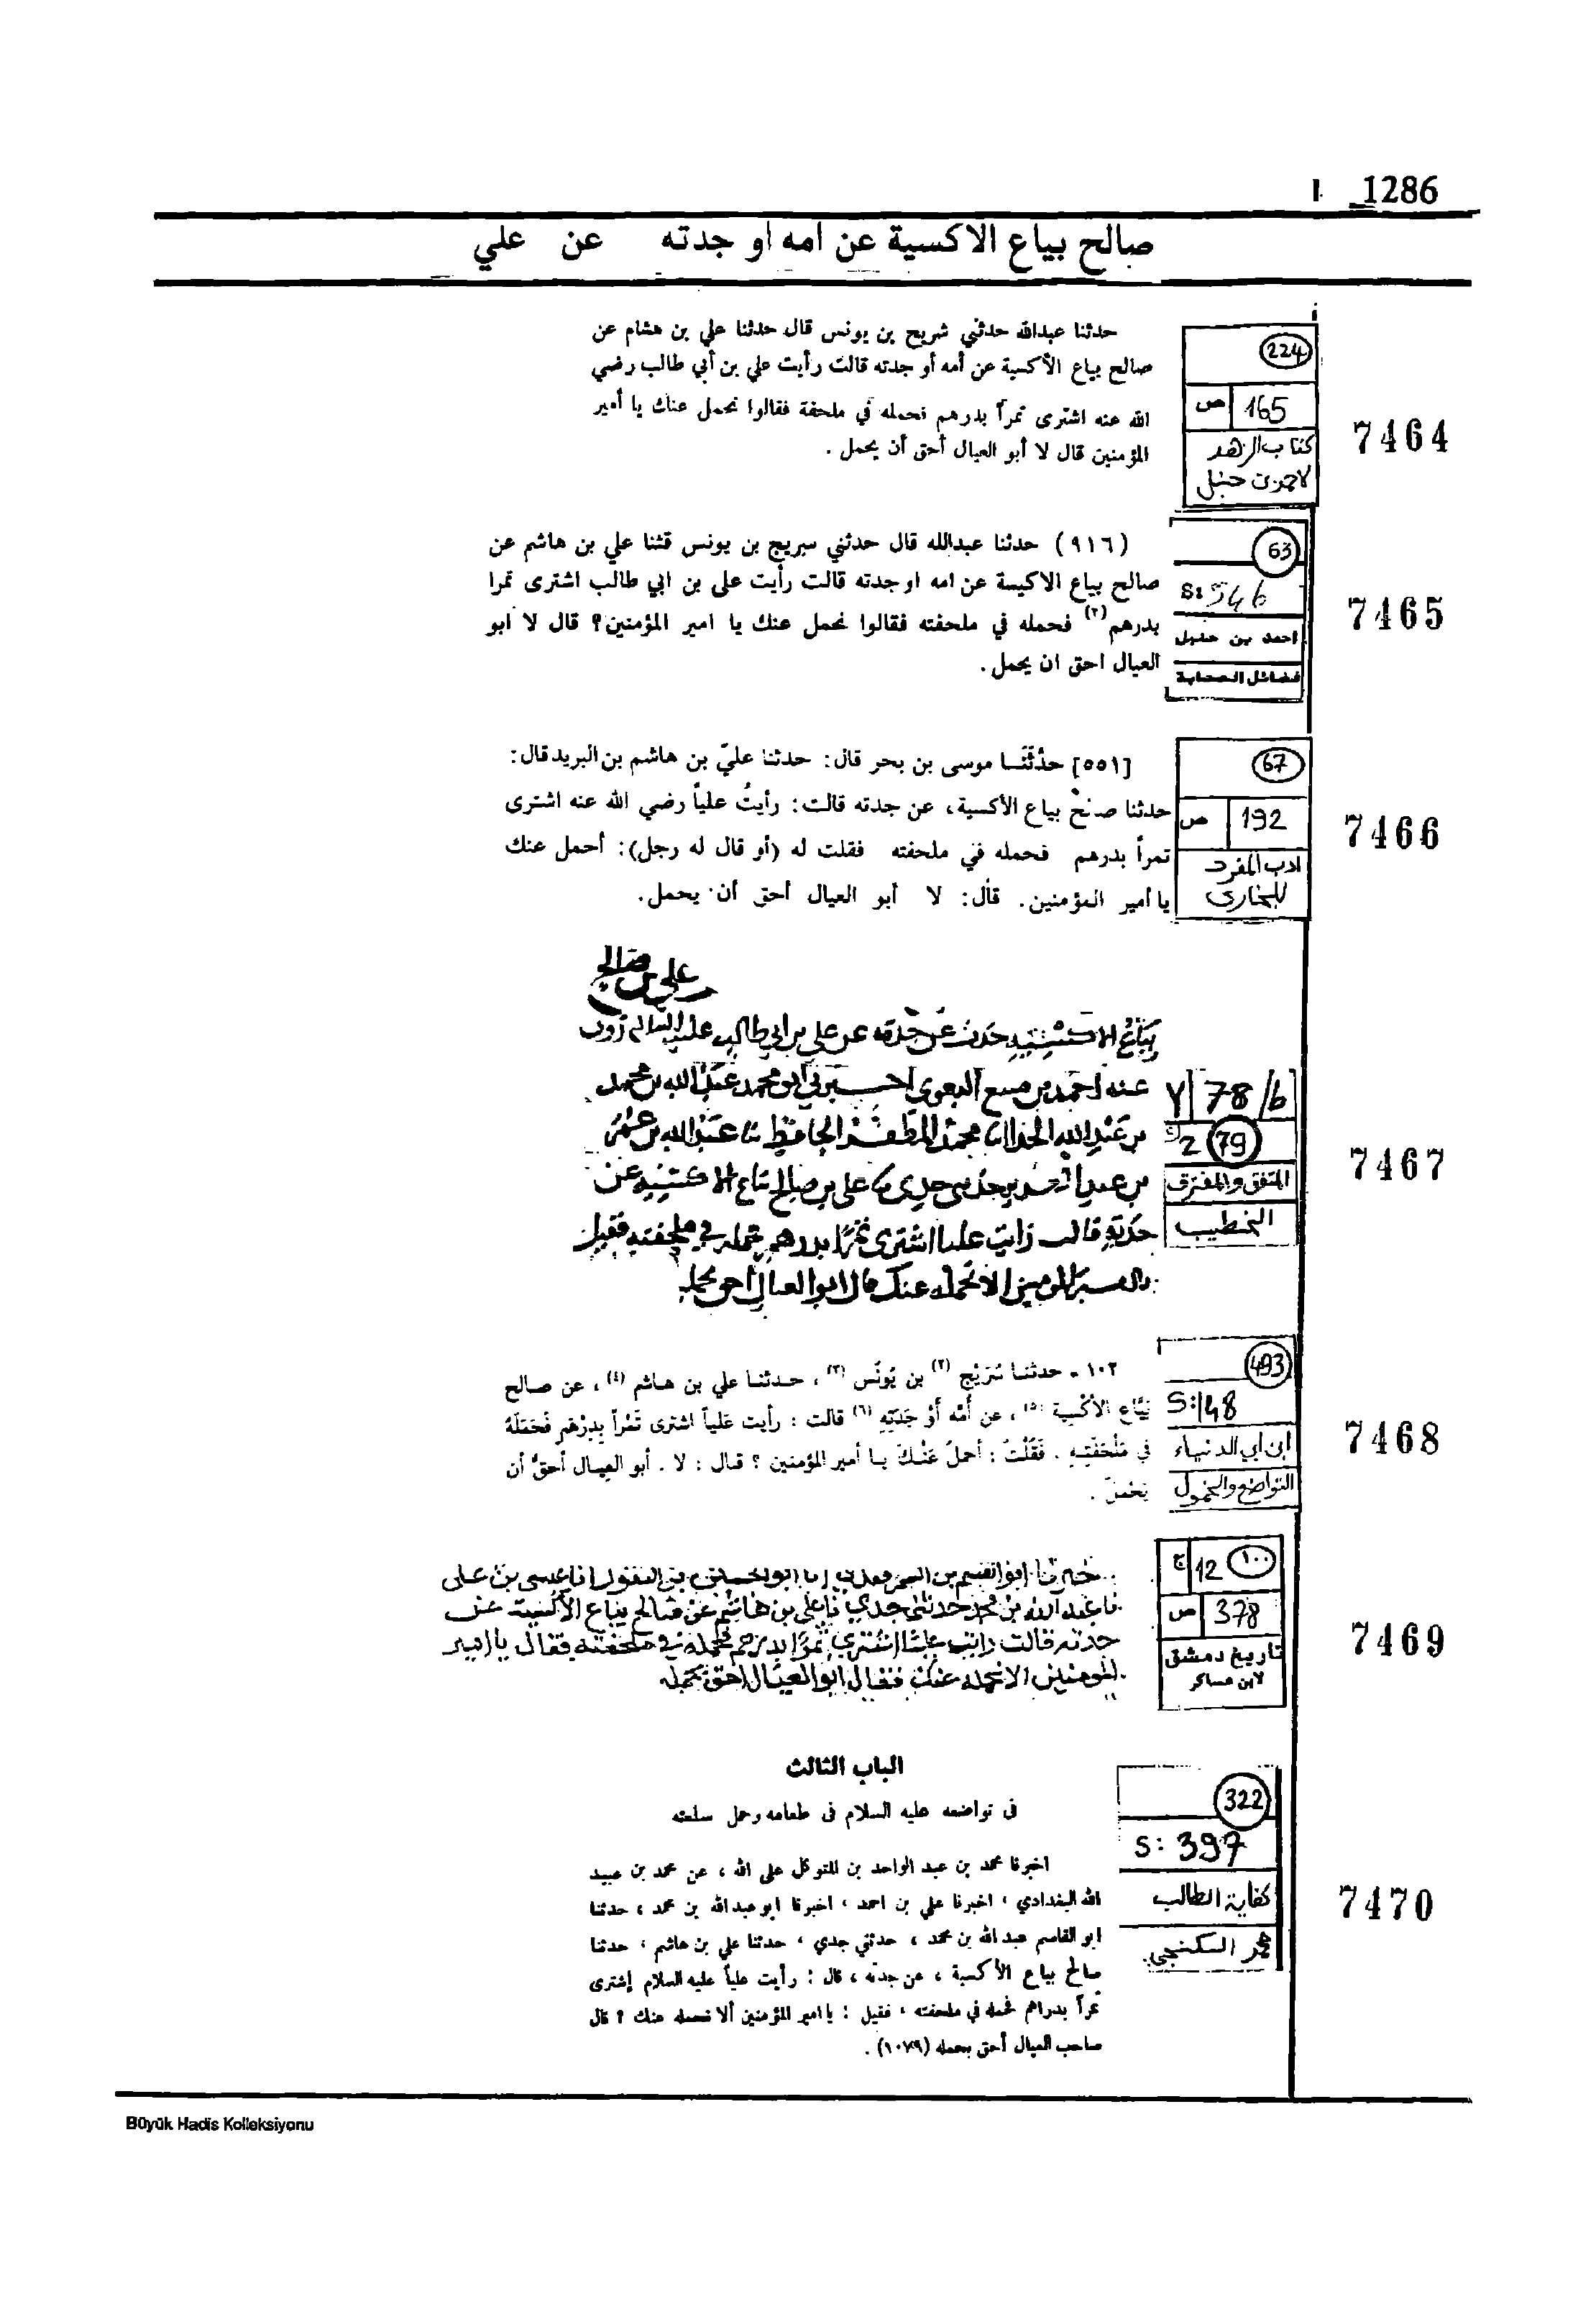 1286_ I
صالح بياع الاكسية عن امه او جدته عن علي
224
ص 165
كتاب الزهد
لاحمد بن حنبل
7464
حدثنا عبدالله حدثني شريح بن يونس قال حدثنا علي بن هشام عن
صالح بياع الأكسية عن أمه أو جدته قالت رأيت علي بن أبي طالب رضي
الله عنه اشترى تمراً بدرهم فحمله في ملحفة فقالوا نحمل عنك يا أمير
المؤمنين قال لا أبو العيال أحق أن يحمل .
63
S: 546
احمد بن حنبل
فضائل الصحابة
7465
(٩١٦) حدثنا عبدالله قال حدثني سريج بن يونس قثنا علي بن هاشم عن
صالح بياع الاكيسة عن امه او جدته قالت رأيت علي بن ابي طالب اشترى تمرا
بدرهم(٢) فحمله في ملحفته فقالوا نحمل عنك يا امير المؤمنين؟ قال لا ابو
العيال احق ان يحمل.
67
ص 192
ادب المفرد
للبخارى
7466
[٥٥١] حدّثَنَا موسى بن بحر قال: حدثنا عليّ بن هاشم بن البريد قال:
حدثنا صالح بياع الأكسية، عن جدته قالت: رأيتُ علياً رضي الله عنه اشترى
تمراً بدرهم فحمله في ملحفته فقلت له (أو قال له رجل): أحمل عنك
يا أمير المؤمنين. قال: لا أبو العيال أحق أن يحمل.
78/b
79
المتفق والمفترق
الخطيب
7467
علي بن صالح
بياع الاكسية حدث عن جدته عن علي بن ابي طالب عليه السلام روى
عنه احمد بن منيع البغوي اخبرني ابو محمد عبد الله بن محمد
بن عبد الله محمد المظفر الحافظ نا عبد الله بن
جدي نا علي بن صالح بياع الاكسية عن
جدته قالت رايت عليا اشترى تمرا بدرهم فحمله في ملحفته فقيل
يا امير المومنين الا نحمله عنك قال ابو العيال احق بحمله
493
S: 148
ابن أبي الدنياء
التواضع والخمول
7468
١٠٢ - حدثنا سُرَيْج (٢) بن يُونُس (٣) ، حدثنا علي بن هاشم (٤) ، عن صالح
بَيَّاع الأكْسِية (٥) ، عن أُمّه أَوْ جَدَّتِهِ (٦) قالت : رأيت عَلياً اشترى تَمْراً بِدِرْهم فَحَمَلَهُ
في مَلْحَفَتِهِ . فَقُلْتُ : أحملُ عَنْكَ يا أمير المؤمنين ؟ قال : لا . أبو العيال أحقُّ أن
يَحْمِلَ .
١٠٠
ج 12
ص 378
تاريخ دمشق
لابن عساكر
7469
اخبرنا ابو القسم بن السمرقندي انا ابو الحسين بن النقور انا عيسى بن علي
نا عبد الله بن محمد حدثني جدي نا علي بن هاشم عن صالح بياع الأكسية عن
جدته قالت رايت عليا اشترى تمرا بدرهم فحمله في ملحفته فقال يا امير
المومنين الا نحمله عنك فقال ابو العيال احق بحمله
322
S: 397
كفاية الطالب
محمد الكنجي
7470
الباب الثالث
في تواضعه عليه السلام في طعامه وحمل سلعته
اخبرنا محمد بن عبد الواحد بن المتوكل على الله ، عن محمد بن عبيد
الله البغدادي ، اخبرنا علي بن احمد ، اخبرنا ابو عبدالله بن محمد ، حدثنا
ابو القاسم عبد الله بن محمد ، حدثني جدي ، حدثنا علي بن هاشم ، حدثنا
صالح بياع الأكسية ، عن جدته ، قال : رأيت علياً عليه السلام إشترى
تمراً بدراهم فحمله في ملحفته ، فقيل : يا امير المؤمنين ألا نحمله عنك ؟ قال
صاحب العيال أحق بحمله (١٠٧٩) .
Büyük Hadis Kolleksiyonu